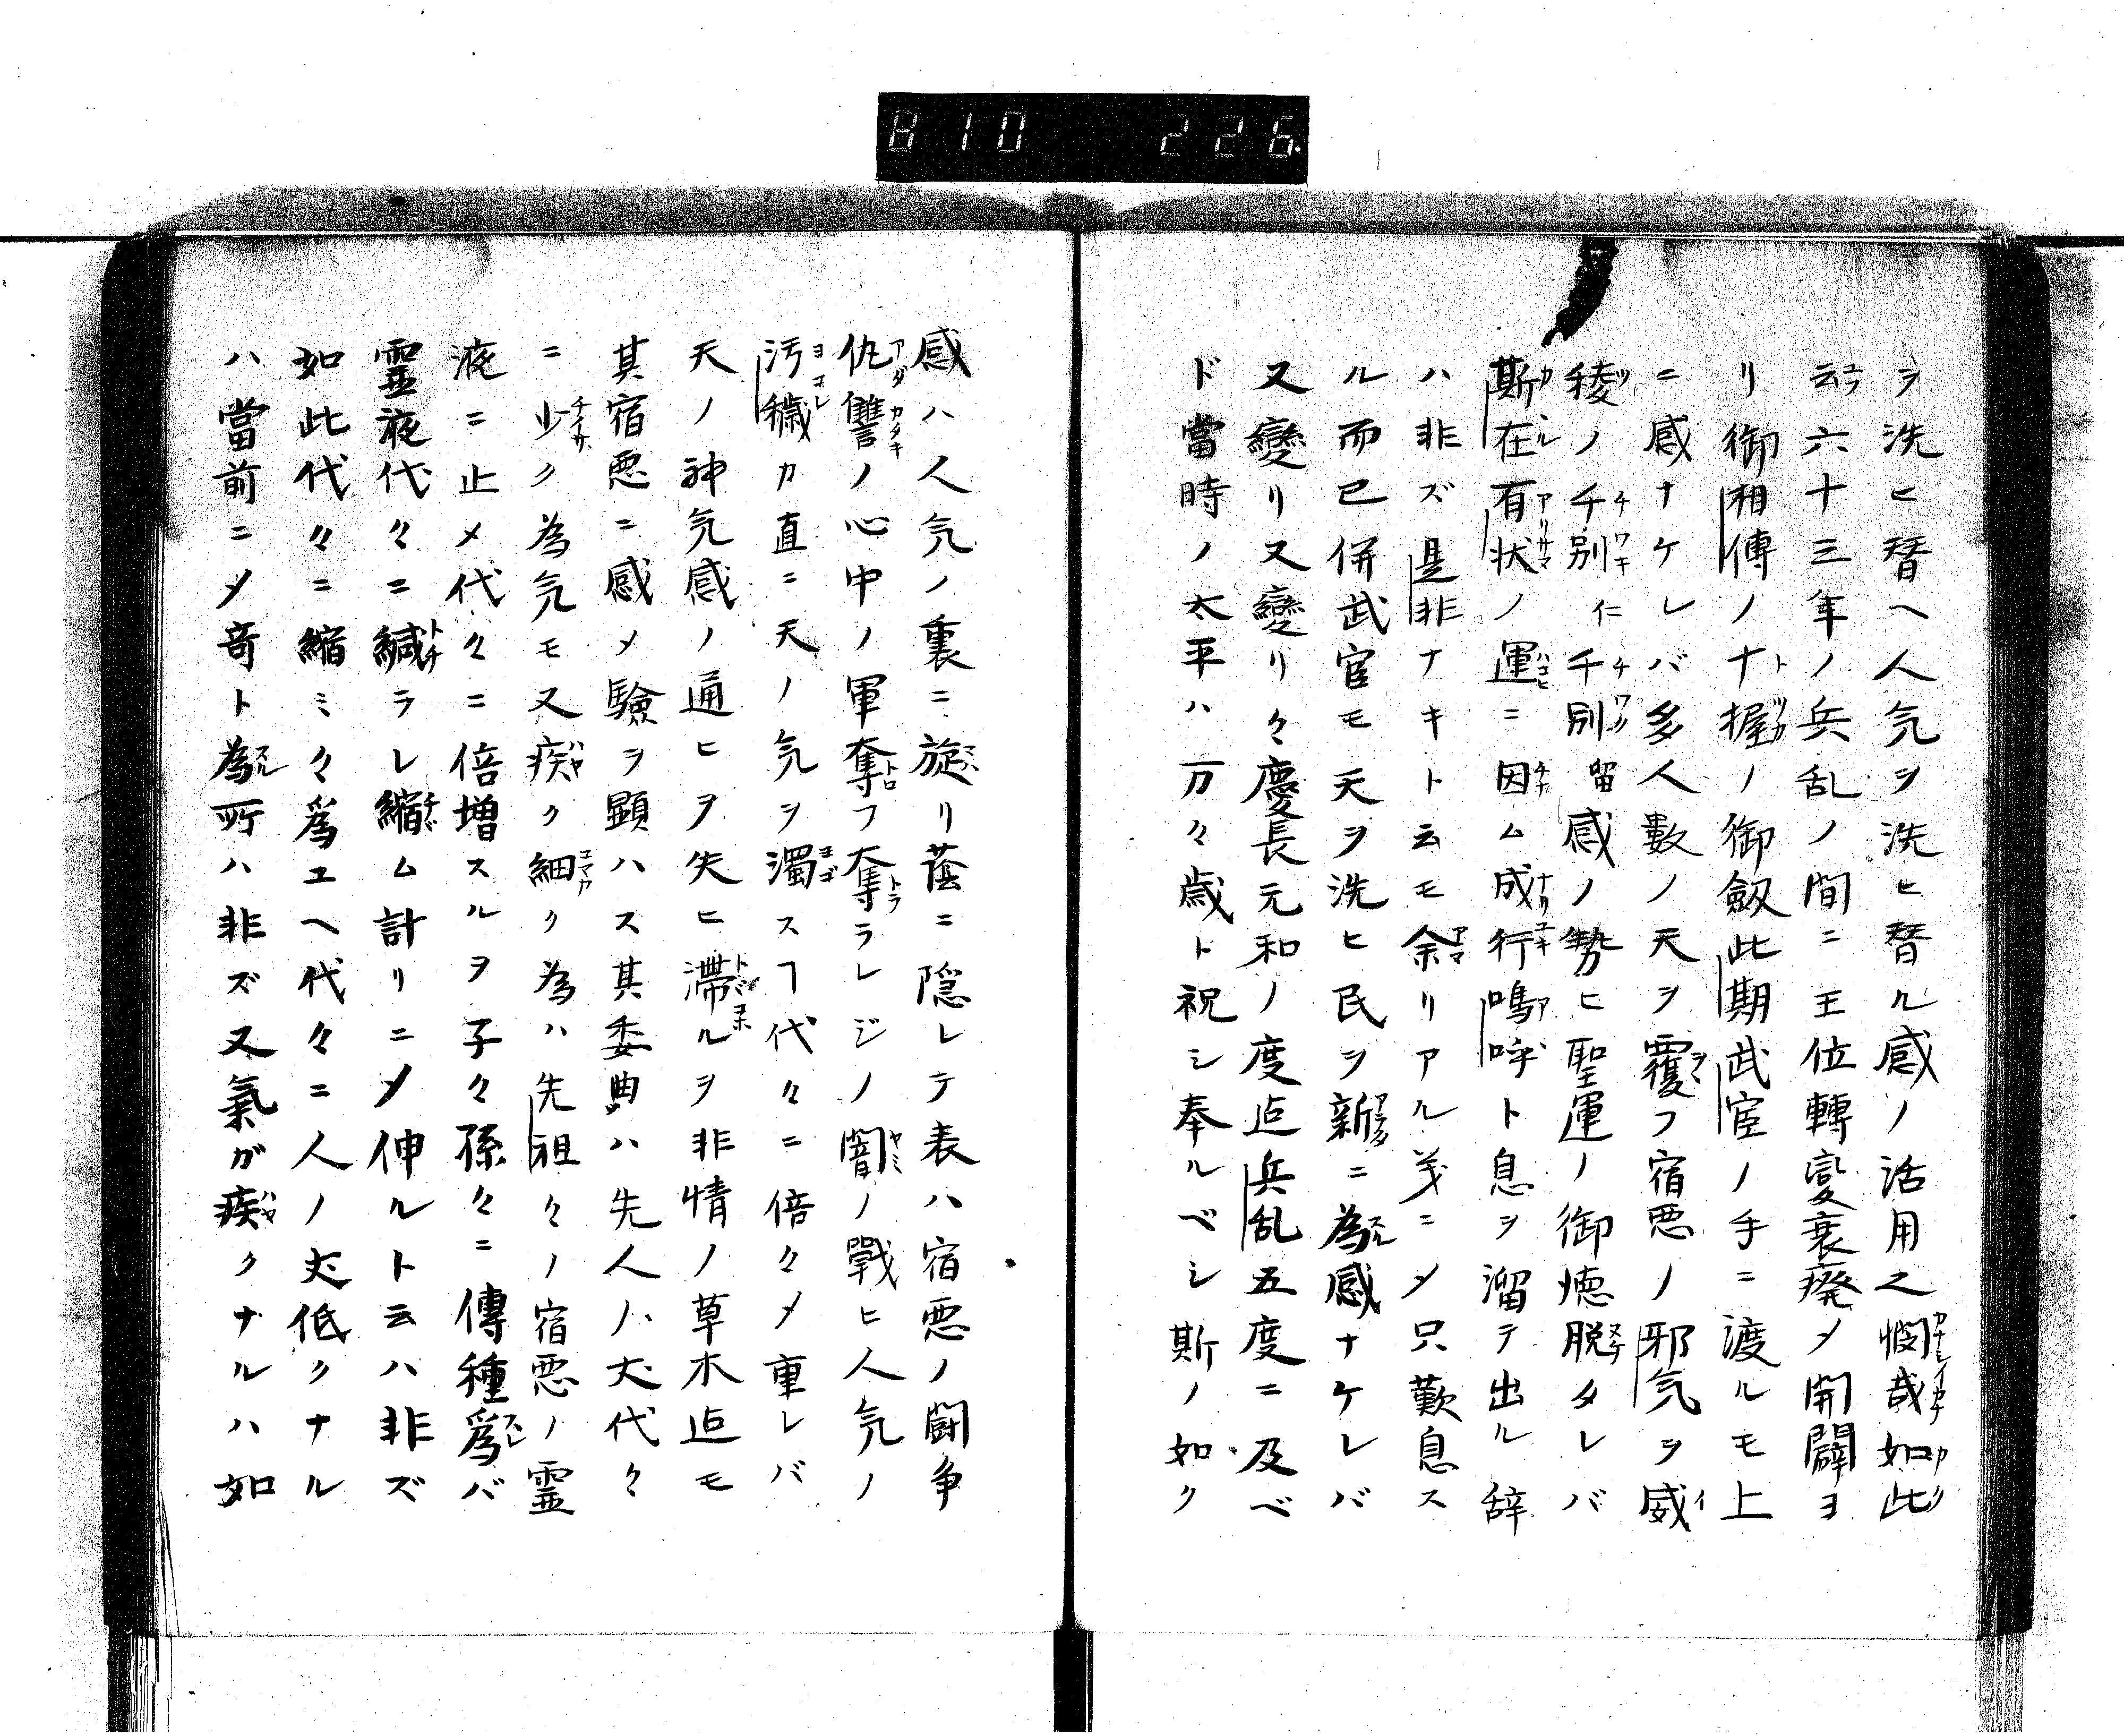 810 226
ヲ洗ヒ替ヘ人気ヲ洗ヒ替ル感ノ活用之憫哉如此
云六十三年ノ兵乱ノ間ニ王位轉變衰癈メ開闢ヨ
リ御相傳ノ十握ノ御劔此期武官ノ手ニ渡ルモ上
ニ感ナケレバ多人數ノ天ヲ覆フ宿悪ノ邪気ヲ威
稜ノ千別仁千別留感ノ勢ヒ聖運ノ御徳脱タレバ
斯在有状ノ運ニ因ム成行鳴呼ト息ヲ溜テ出ル辞
ハ非ズ是非ナキト云モ余リアル義ニメ只歎息ス
ル而已併武官モ天ヲ洗ヒ民ヲ新ニ為感ナケレバ
又變リ又變リ々慶長元和ノ度迠兵乱五度ニ及ベ
ド當時ノ太平ハ万々歳ト祝シ奉ルベシ斯ノ如ク
感ハ人気ノ裏ニ旋リ蔭ニ隠レテ表ハ宿悪ノ闘争
仇讐ノ心中ノ軍奪フ奪ラレジノ闇ノ戰ヒ人気ノ
汚穢カ直ニ天ノ気ヲ濁スヿ代々ニ倍々メ重レバ
天ノ神気感ノ通ヒヲ失ヒ滞ルヲ非情ノ草木迠モ
其宿悪ニ感メ驗ヲ顕ハス其委曲ハ先人ノ丈代々
ニ少ク為気モ又疾ク細ク為ハ先祖々ノ宿悪ノ霊
液ニ止メ代々ニ倍増スルヲ子々孫々ニ傳種爲バ
霊液代々ニ緘ラレ縮ム計リニメ伸ルト云ハ非ズ
如此代々ニ縮ミ々爲ユヘ代々ニ人ノ丈低クナル
ハ當前ニメ竒ト為所ハ非ズ又氣ガ疾クナルハ如